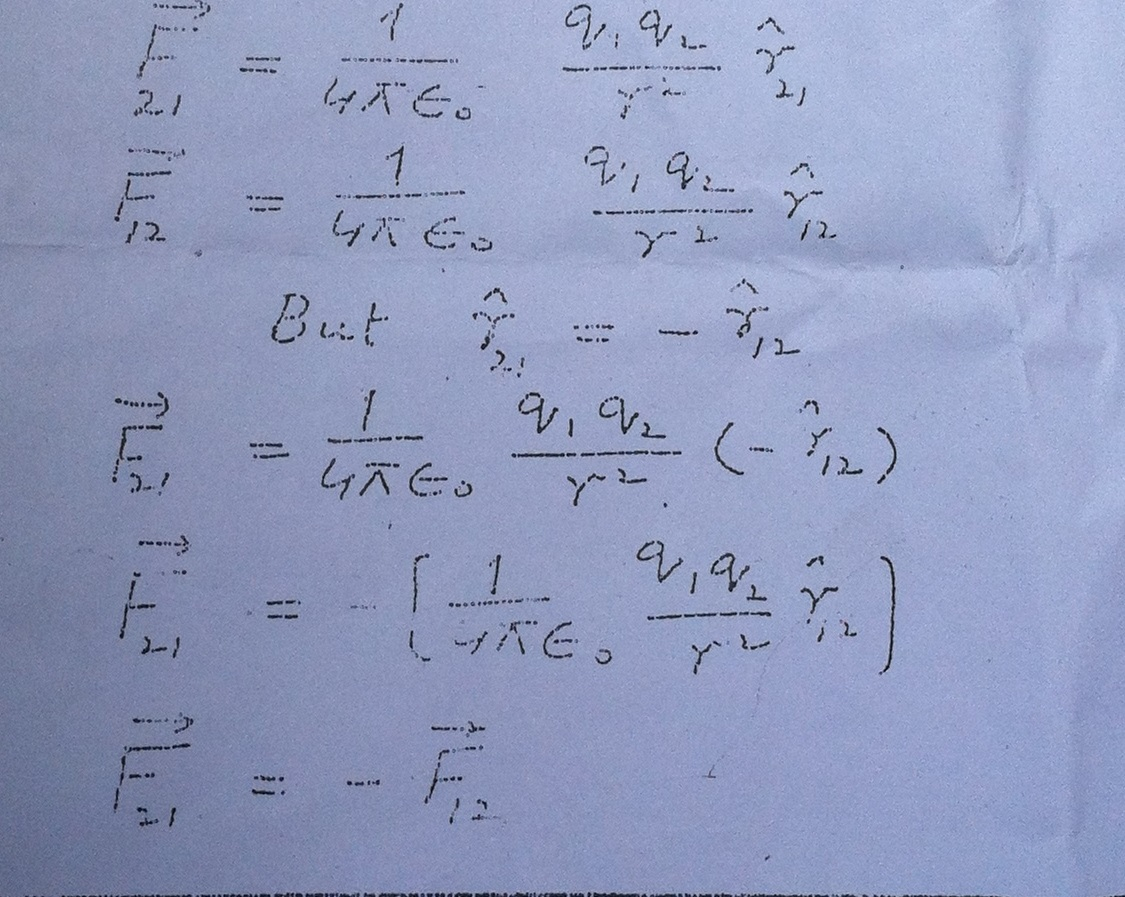 $\vec{F}_{21} = \frac{1}{4\pi\epsilon_0} \frac{q_1 q_2}{r^2} \hat{r}_{21}$
$\vec{F}_{12} = \frac{1}{4\pi\epsilon_0} \frac{q_1 q_2}{r^2} \hat{r}_{12}$
But $\hat{r}_{21} = - \hat{r}_{12}$
$\vec{F}_{21} = \frac{1}{4\pi\epsilon_0} \frac{q_1 q_2}{r^2} (- \hat{r}_{12})$
$\vec{F}_{21} = - \left[ \frac{1}{4\pi\epsilon_0} \frac{q_1 q_2}{r^2} \hat{r}_{12} \right]$
$\vec{F}_{21} = - \vec{F}_{12}$